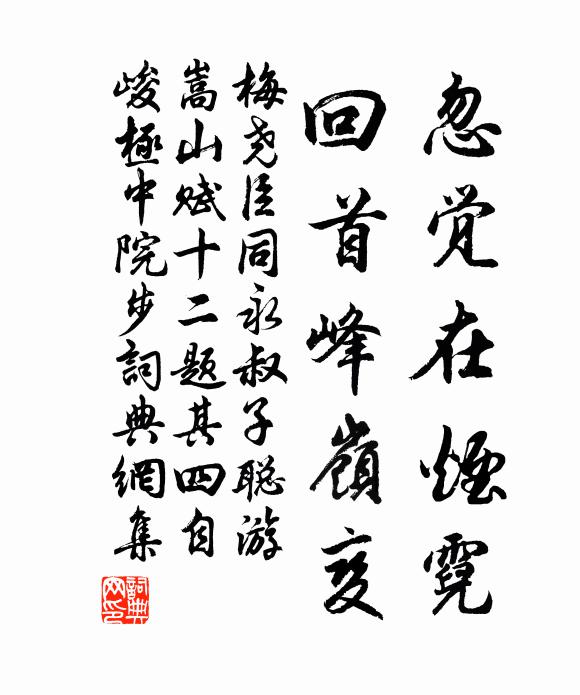 忽觉在煙霓
回首峰嶺变
梅尧臣同永叔子聪游
嵩山赋十二题其四自
峻極中院步詞典網集
詞典
网印